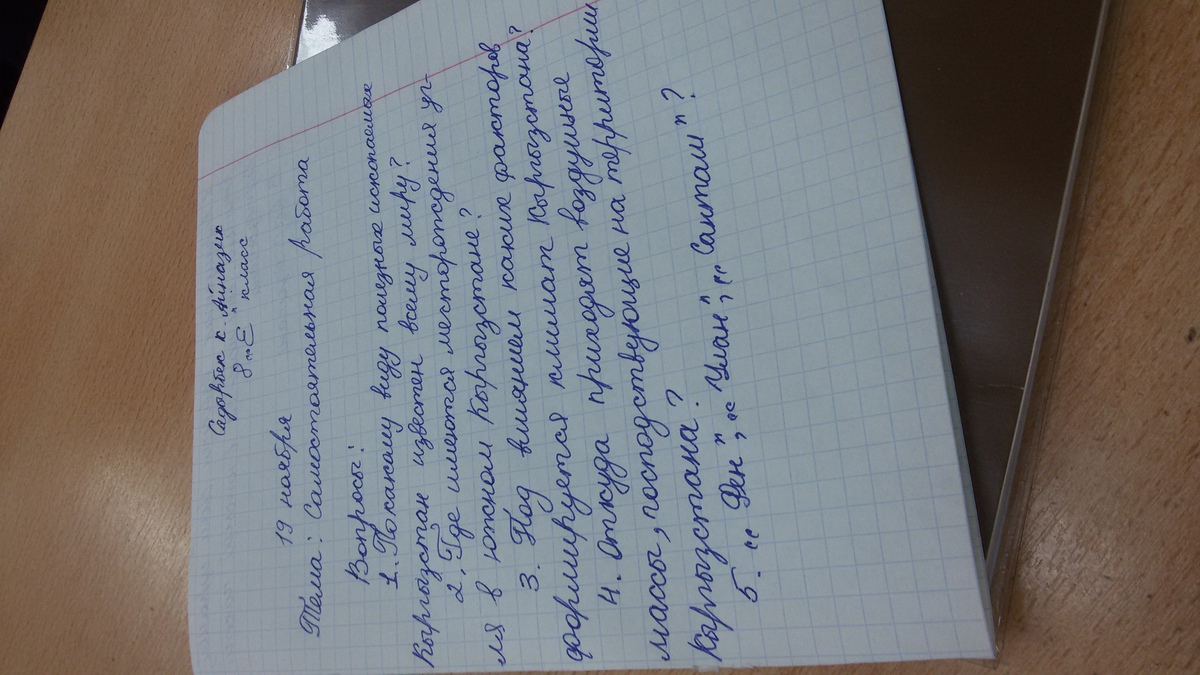 Садорбек к. Айназик
8 "Е" класс
19 ноября
Тема: Самостоятельная работа
Вопросы:
1. По какому виду полезных ископаемых
Кыргызстан известен всему миру?
2. Где имеются месторождения уг-
ля в южном Кыргызстане?
3. Под влиянием каких факторов
формируется климат Кыргызстана?
4. Откуда приходят воздушные
массы, господствующие на территории
Кыргызстана?
5. "Фен", "Улан", "Санташ"?